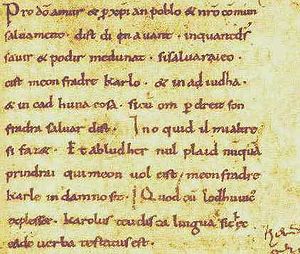 Pro dō amur & p xpīan poblo & nrō cōmun
saluament. dist di en auant. inquantdſ
sauir & podir medunat. sisaluaraieo
cist meon fradre Karlo. & in adiudha
& in cad huna cosa. sicū om p dreit son
fradra saluar dift. Ino quid il mialtre
si faz&. Et abludher nul plaid nūquā
prindrai qui meon uol cist. meon fradre
Karle in damno sit. Quod cū lodhuuic
explesset. Karolus teudisca lingua sic
eadē uerba testatus est.